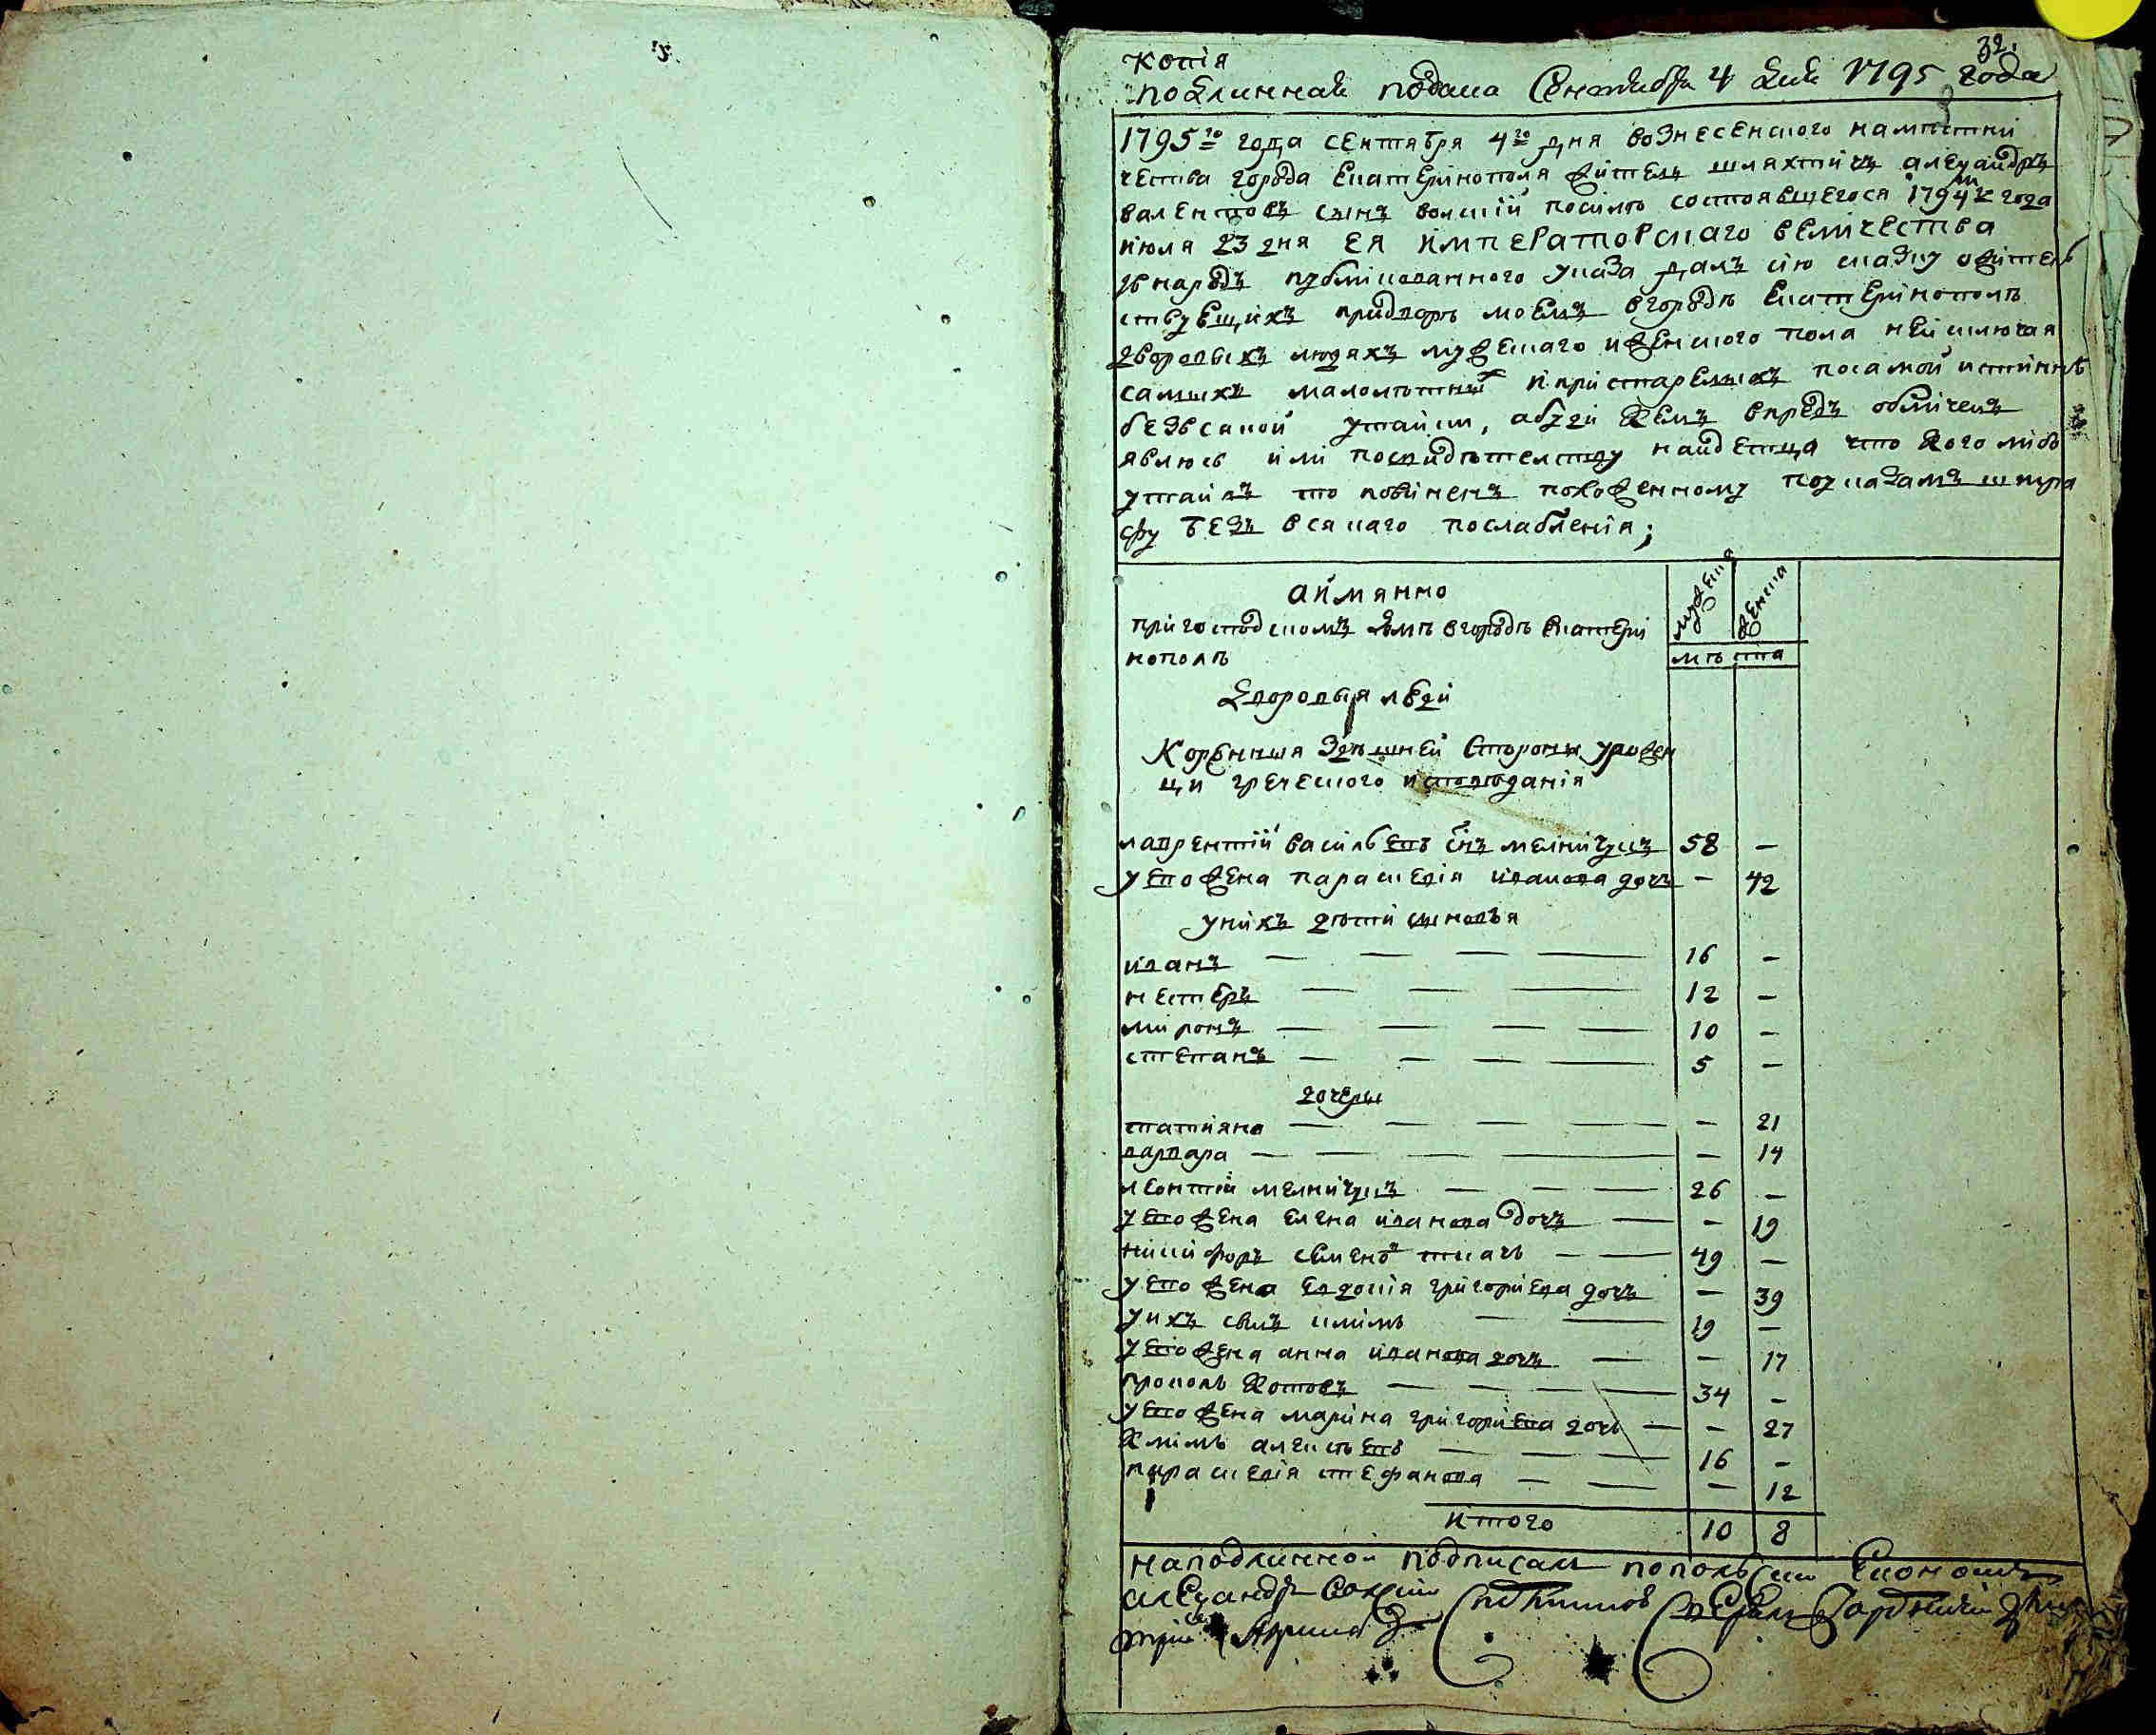 32.
копія
подлинная подана Сентября 4 дня 1795 года
1795го года сентября 4го дня вознесенского намѣстни
чества города Екатерінополя житель шляхтичъ алеѯандръ
валентовъ сынъ волскій посилѣ состоявшегося 1794м года
июля 23 дня ея императорскаго величества
внародъ публікованного указа далъ сію сказку ожітель
ствующихъ придворѣ моемъ вгородѣ Екатерінополѣ
дворовыхъ людяхъ мужескаго иженского пола неисключая
самыхъ малолѣтныхъ ипрістарелыхъ посамой истиннѣ
безъвсякой утайки, абуди кемъ впредь обліченъ
явлюсь или посвидѣтелству найдетца что кого либо
утаилъ то повіненъ положенному поуказамъ штра
фу безъ всякаго послабленія;
аймянно
прігосподскомъ домѣ вгородѣ Екатері
нополѣ
мужеск
женска
лѣ та
Дворовыя люди
Коренныя здѣшней стороны урожен
ци греческого исповѣданія
лаврентій васильевъ снъ мелнічукъ 58 —
у ево жена параскевія иванова дочъ — 42
унихъ дѣти сыновья
иванъ — 16 —
нестеръ — 12 —
миронъ — 10 —
степанъ — 5 —
дочеры
татияна — — 21
варвара — — 14
леонтій мелничукъ — 26 —
у ево жена елена иванова дочъ — — 19
никифоръ семеновъ ткачь — 49 —
у ево жена евдокія григориева дочъ — 39
у ихъ сынъ климъ — 19 —
у ево жена анна иванова дочъ — — 17
прокопъ котовъ — 34 —
у ево жена марина григориева дочь — — 27
климъ алексѣевъ — 16 —
параскевія стефанова — — 12
итого 10 8
наподлинной подписалъ попольски Економъ
алеѯандръ волский